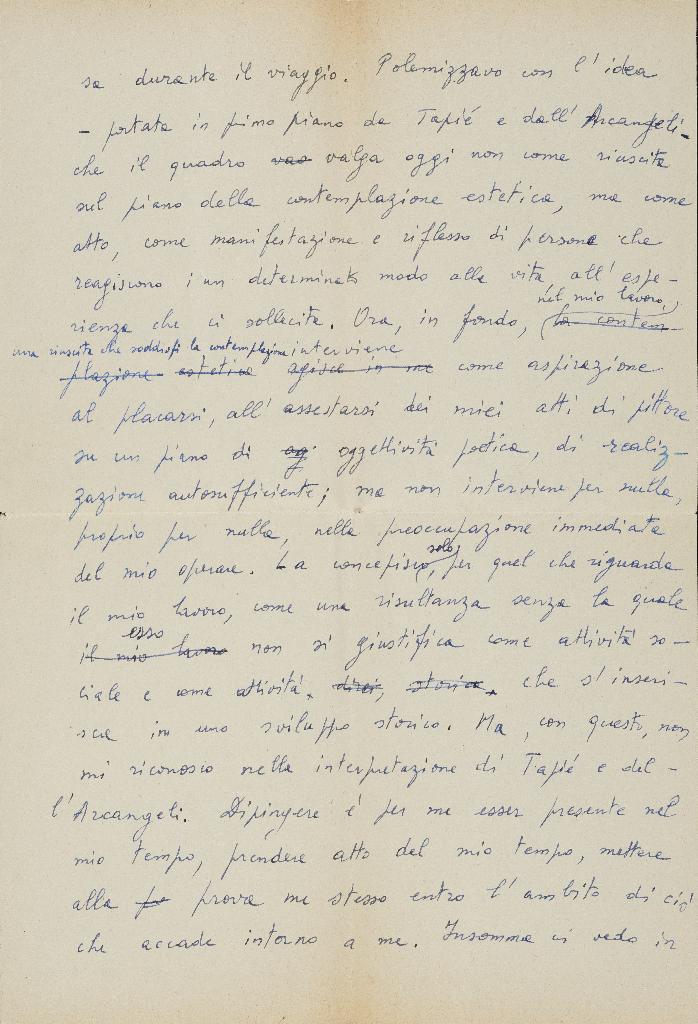 sa durante il viaggio. Polemizzavo con l'idea
- portata in primo piano da Tapié e dall'Arcangeli -
che il quadro vao valga oggi non come riuscita
sul piano della contemplazione estetica, ma come
atto, come manifestazione e riflesso di persone che
reagiscono i un determinato modo alla vita all'espe-
nel mio lavoro,
rienza che ci sollecita. Ora, in fondo, (la contem-
una riuscita che soddisfi la contemplazione interviene
plazione estetica agisce in me come aspirazione
al placarsi, all'assestarsi dei miei atti di pittore
su un piano di og oggettività poetica, di realiz-
zazione autosufficiente; ma non interviene per nulla,
proprio per nulla, nella preoccupazione immediata
solo,
del mio operare. La concepisco, per quel che riguarda
il mio lavoro, come una risultanza senza la quale
esso
il mio lavoro non si giustifica come attività so-
ciale e come attività, direi, storica, che s'inseri-
sce in uno sviluppo storico. Ma, con questo, non
mi riconosco nella interpretazione di Tapié e del-
l'Arcangeli. Dipingere é per me esser presente nel
mio tempo, prendere atto del mio tempo, mettere
alla pr prova me stesso entro l'ambito di ciò
che accade intorno a me. Insomma ci vedo in